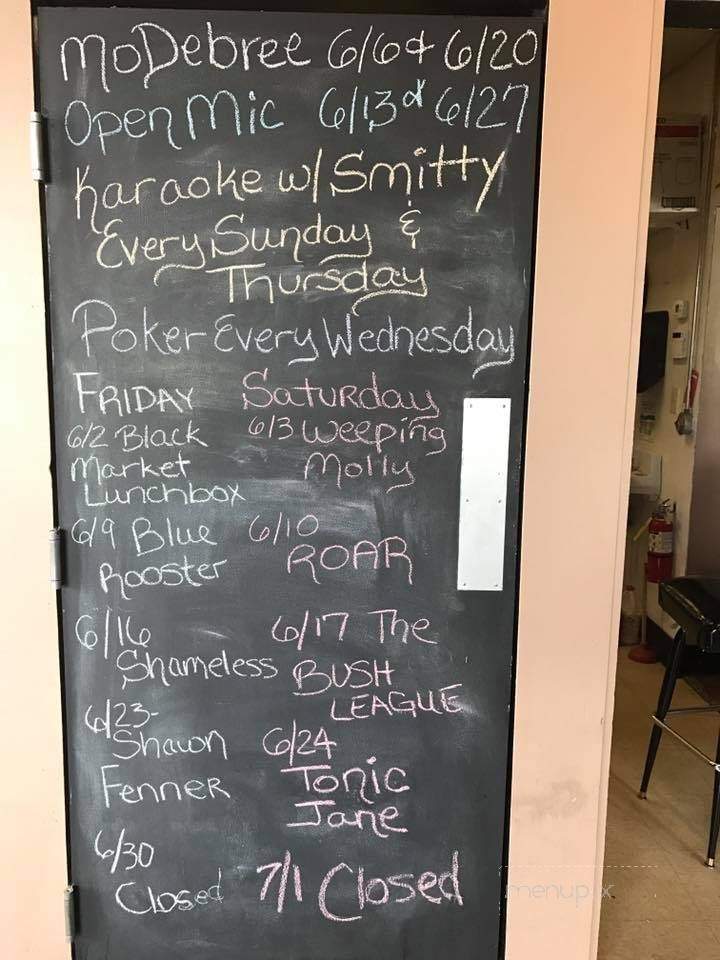 MoDebree 6/6 & 6/20
Open Mic 6/13 & 6/27
Karaoke w/ Smitty
Every Sunday &
Thursday
Poker Every Wednesday
FRIDAY Saturday
6/2 Black 6/3 Weeping
Market Molly
Lunchbox
6/9 Blue 6/10
Rooster ROAR
6/16 6/17 The
Shameless BUSH
LEAGUE
6/23-
Shawn 6/24
Fenner Tonic
Jane
6/30
Closed 7/1 Closed
menupix